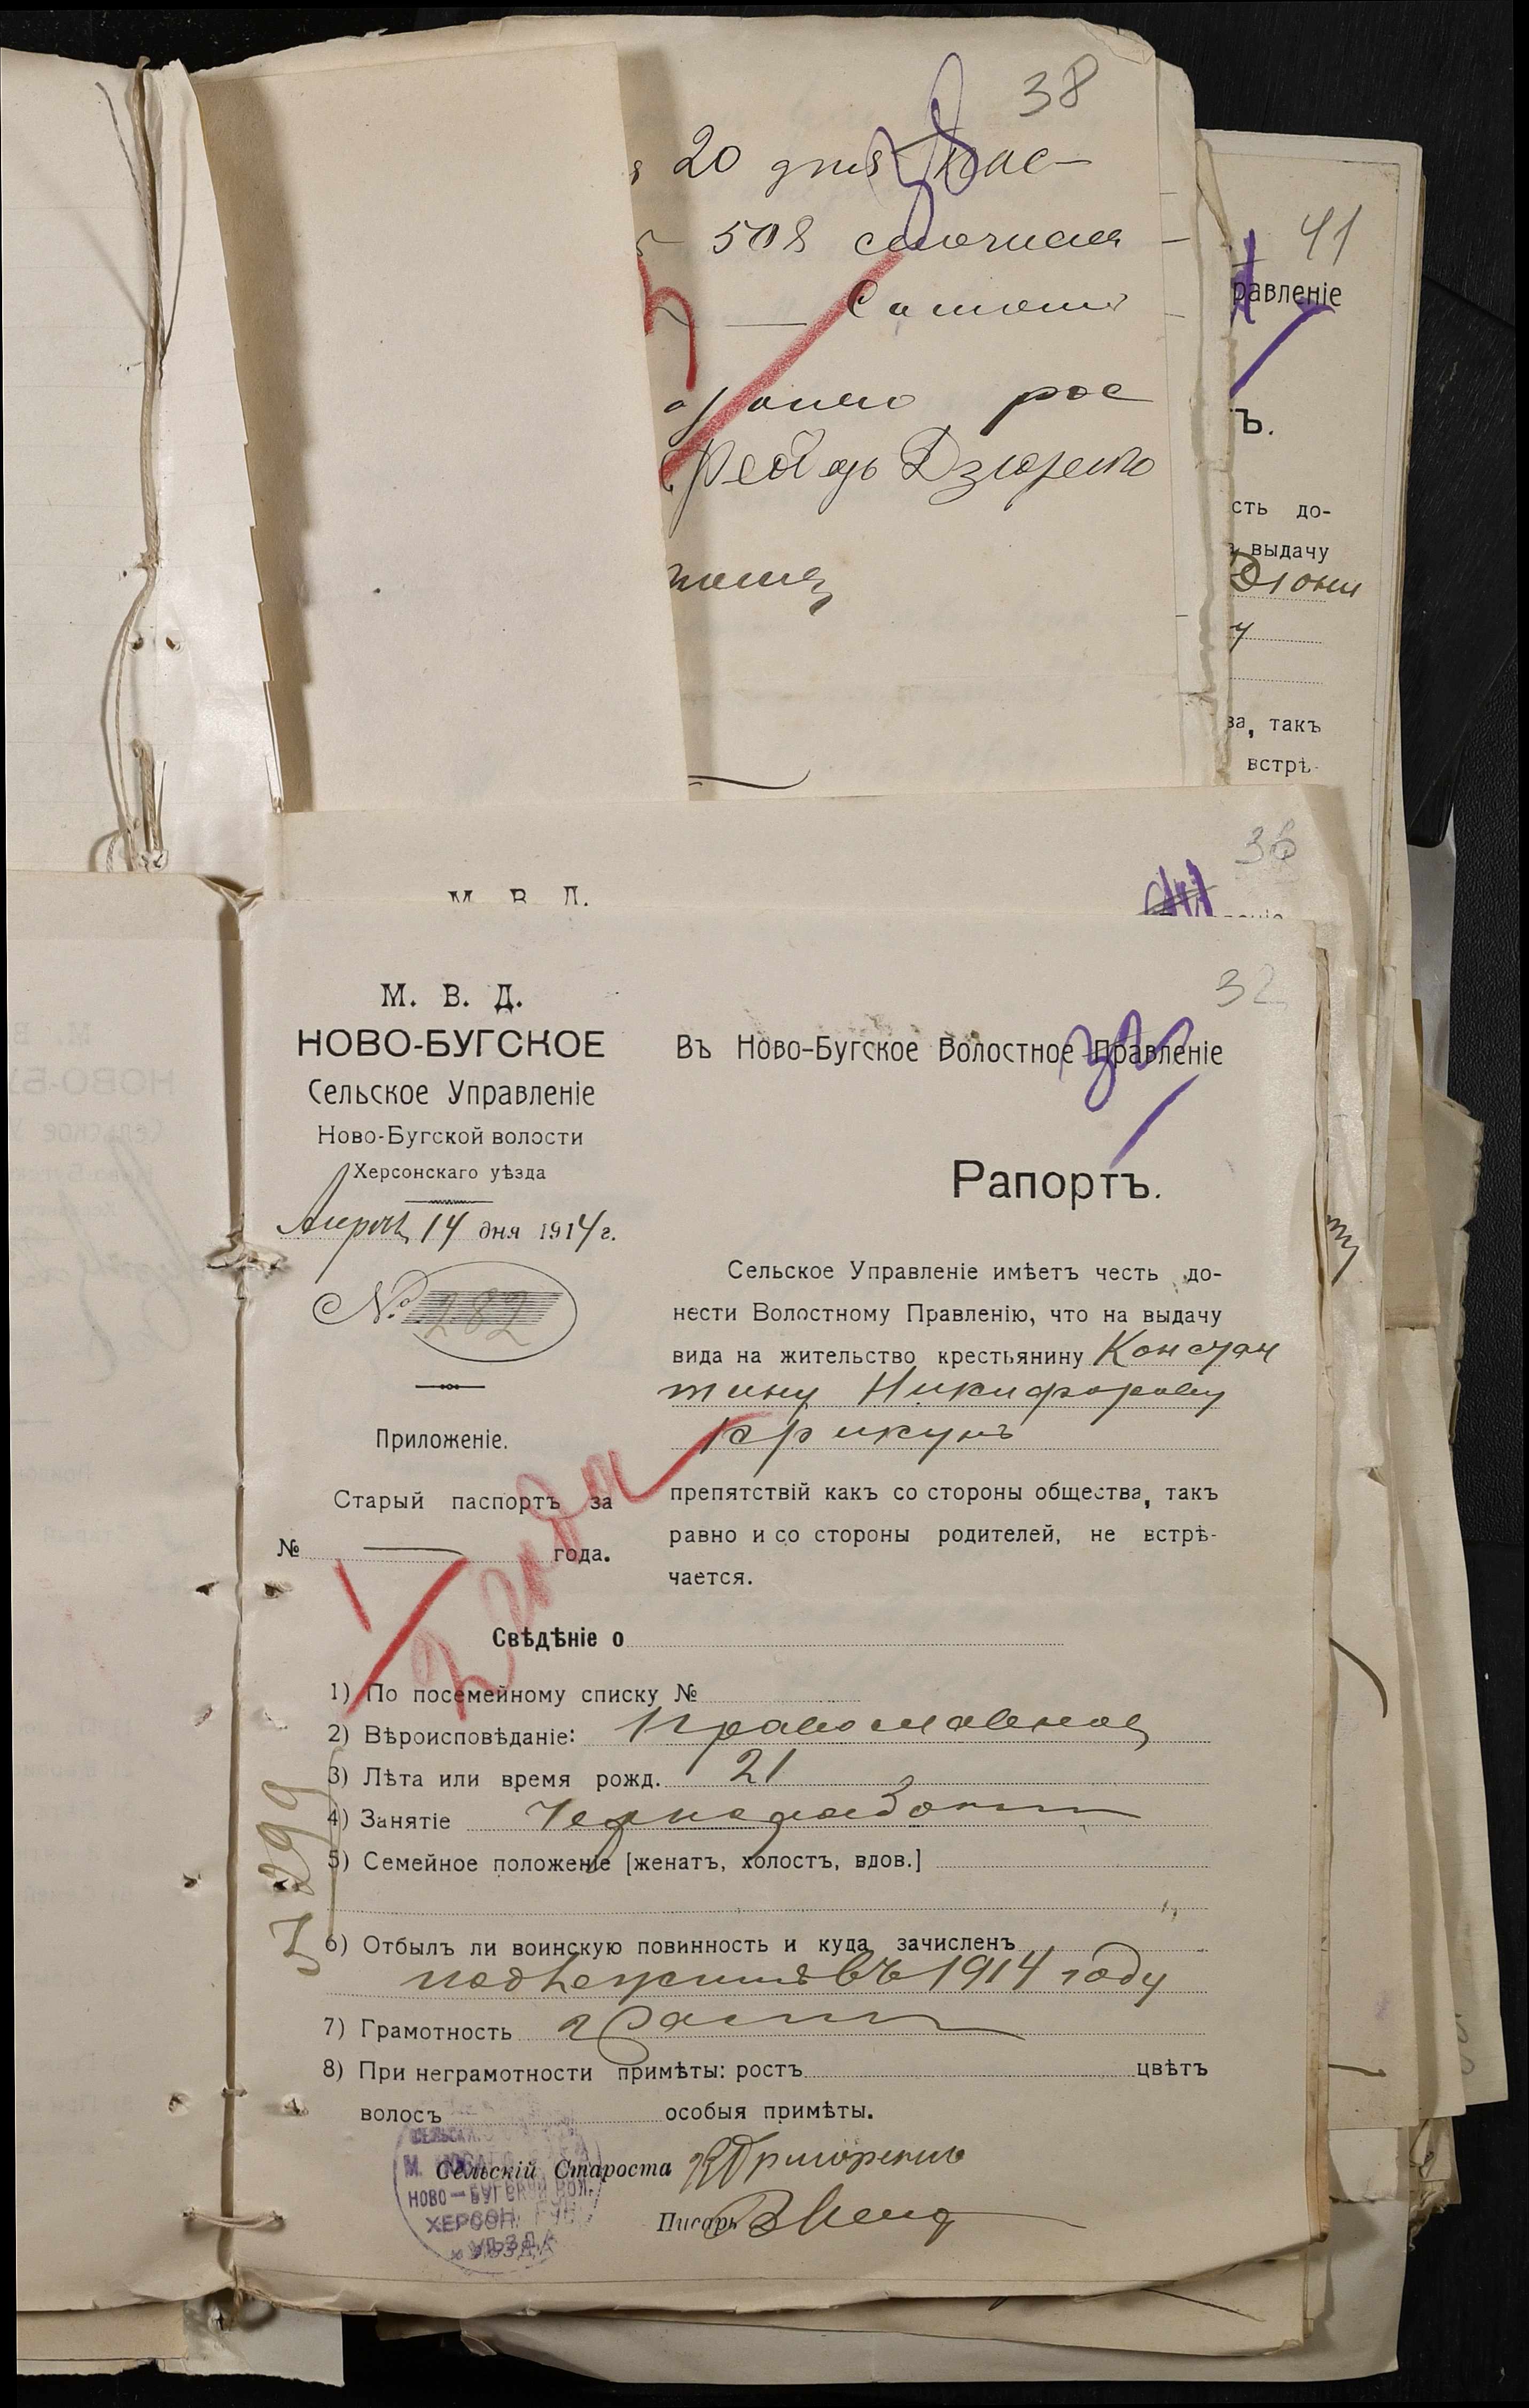 38
20 дня
508
рос
41
равленіе
ъ.
сть до-
выдачу
ва, такъ
встрѣ-
36
М. В. Д.
32
М. В. Д.
НОВО-БУГСКОЕ
Сельское Управленіе
Ново-Бугской волости
Херсонскаго уѣзда
14 дня 1914 г.
№ 282
Приложеніе.
Старый паспортъ за
№ — года.
Въ Ново-Бугское Волостное Правленіе
32
Рапортъ.
Сельское Управленіе имѣетъ честь до-
нести Волостному Правленію, что на выдачу
вида на жительство крестьянину Констан
тину Никифорову
Крикунъ
препятствій какъ со стороны общества, такъ
равно и со стороны родителей, не встрѣ-
чается.
Свѣдѣніе о
1) По посемейному списку №
2) Вѣроисповѣданіе: Православное
3) Лѣта или время рожд. 21
4) Занятіе
5) Семейное положеніе [женатъ, холостъ, вдов.]
6) Отбылъ ли воинскую повинность и куда зачисленъ
подлежитъ въ 1914 году
7) Грамотность
8) При неграмотности примѣты: ростъ цвѣтъ
волосъ особыя примѣты.
Сельскій Староста
Писарь
НОВО-БУГСКОЙ ВОЛ.
ХЕРСОН.
УѢЗДА